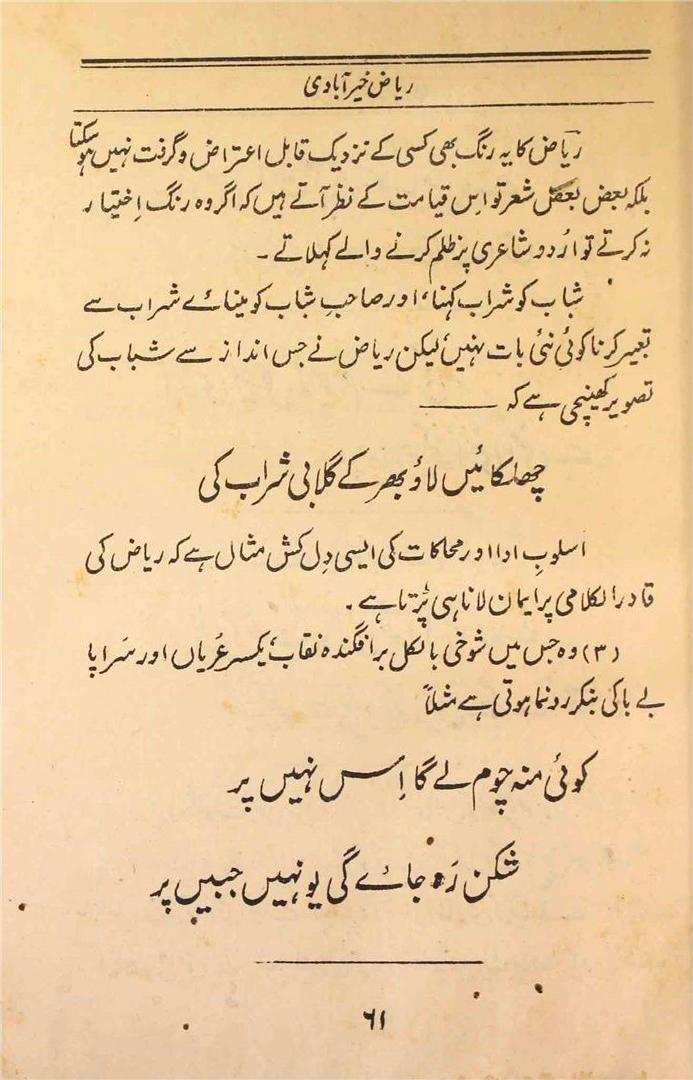 ریاض خیرآبادی
ریاض کا یہ رنگ بھی کسی کے نزدیک قابل اعتراض و گرفت نہیں ہو سکتا
بلکہ بعض بعض شعر تو اِس قیامت کے نظر آتے ہیں کہ اگر وہ رنگ اِختیار
نہ کرتے تو اُردو شاعری پر ظلم کرنے والے کہلاتے ۔
شباب کو شراب کہنا، اور صاحبِ شباب کو مینائے شراب سے
تعبیر کرنا کوئی نئی بات نہیں لیکن ریاض نے جس انداز سے شباب کی
تصویر کھینچی ہے کہ ———
چھلکائیں لاؤ بھر کے گلابی شراب کی
اسلوبِ ادا اور محاکات کی ایسی دِل کش مثال ہے کہ ریاض کی
قادر الکلامی پر ایمان لانا ہی پڑتا ہے ۔
(۳) وہ جس میں شوخی بالکل برافگندہ نقاب، یکسر عُریاں اور سَراپا
بے باکی بنکر رونما ہوتی ہے مثلاً
کوئی منہ چوم لے گا اِس نہیں پر
شکن رَہ جائے گی یونہیں جبیں پر
۶۱